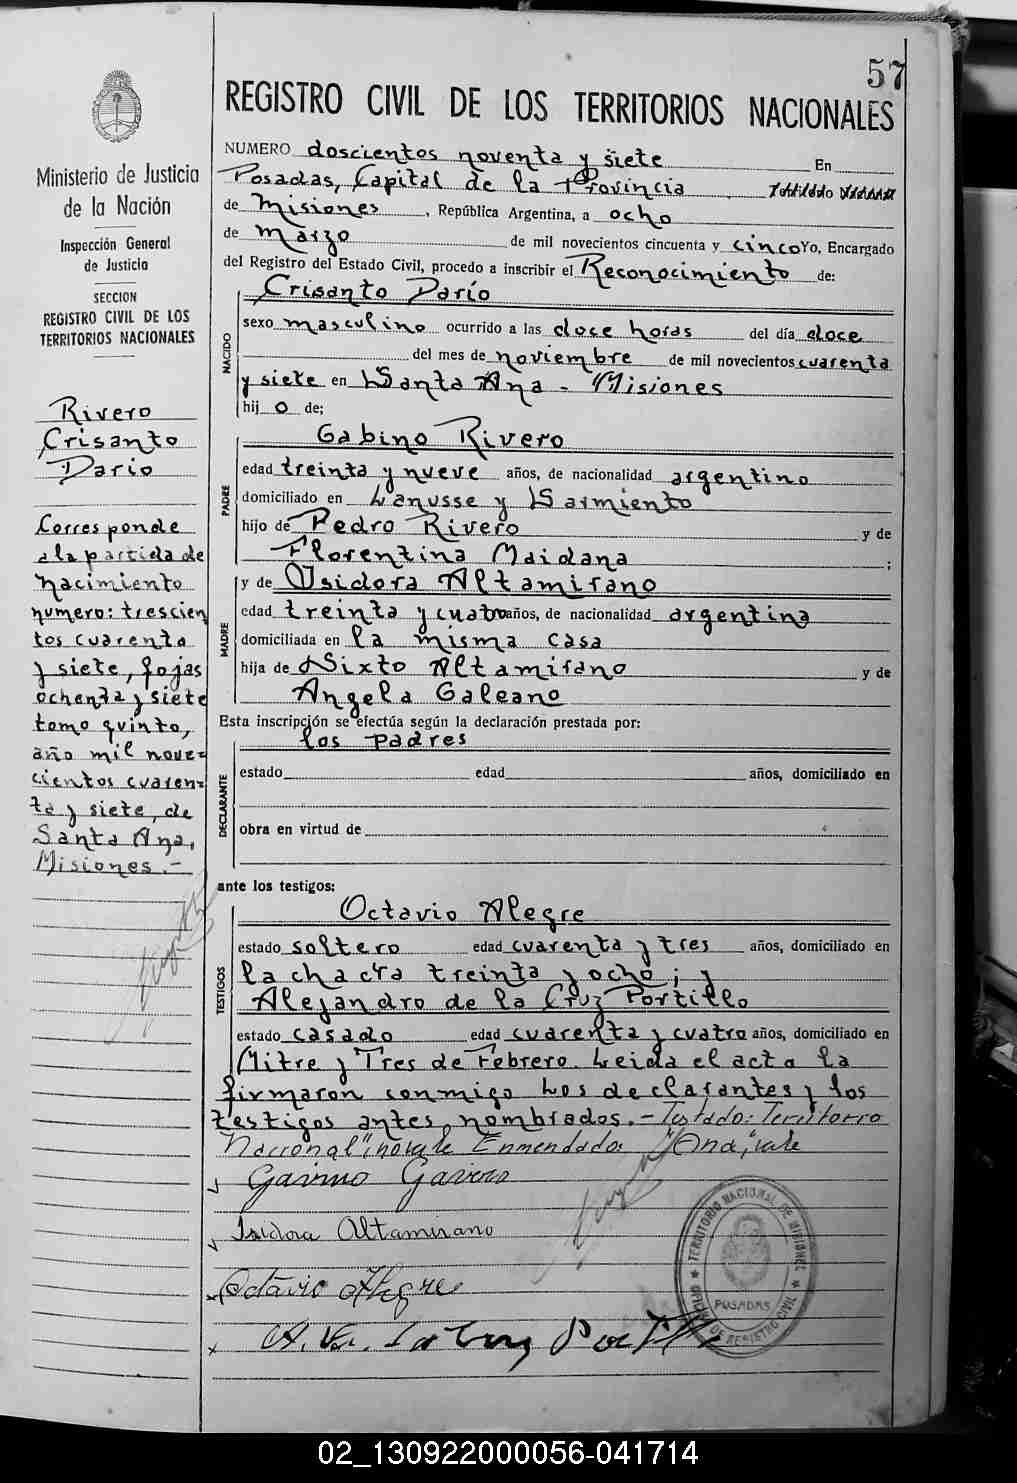 57
REGISTRO CIVIL DE LOS TERRITORIOS NACIONALES
Ministerio de Justicia
de la Nación
Inspección General
de Justicia
SECCION
REGISTRO CIVIL DE LOS
TERRITORIOS NACIONALES
Rivero
Crisanto
Dario
Corresponde
a la partida de
nacimiento
numero: trescien
tos cuarenta
y siete, fojas
ochenta y siete
tomo quinto,
año mil nove=
cientos cuaren=
ta y siete, de
Santa Ana,
Misiones.-
NUMERO doscientos noventa y siete En
Posadas, Capital de la Provincia
de Misiones, República Argentina, a ocho
de marzo de mil novecientos cincuenta y cinco Yo, Encargado
del Registro del Estado Civil, procedo a inscribir el Reconocimiento de:
NACIDO
Crisanto Darío
sexo masculino ocurrido a las doce horas del día doce
del mes de noviembre de mil novecientos cuarenta
y siete en Santa Ana - Misiones
hij o de;
PADRE
Gabino Rivero
edad treinta y nueve años, de nacionalidad argentino
domiciliado en Lanusse y Sarmiento
hijo de Pedro Rivero y de
Florentina Maidana ;
MADRE
y de Isidora Altamirano
edad treinta y cuatro años, de nacionalidad argentina
domiciliada en la misma casa
hija de Sixto Altamirano y de
Angela Galeano
Esta inscripción se efectúa según la declaración prestada por:
los padres
DECLARANTE
estado edad años, domiciliado en
obra en virtud de
ante los testigos:
TESTIGOS
Octavio Alegre
estado soltero edad cuarenta y tres años, domiciliado en
la chacra treinta y ocho; y
Alejandro de la Cruz Portillo
estado casado edad cuarenta y cuatro años, domiciliado en
Mitre y Tres de Febrero. Leida el acta la
firmaron conmigo los declarantes y los
testigos antes nombrados.- Testado: Territorio
Nacional", no vale Enmendado: "Ana", vale
Gavino Rivero
Isidora Altamirano
Octavio Alegre
TERRITORIO NACIONAL DE MISIONES
POSADAS
OFICINA DE REGISTRO CIVIL
02_130922000056-041714